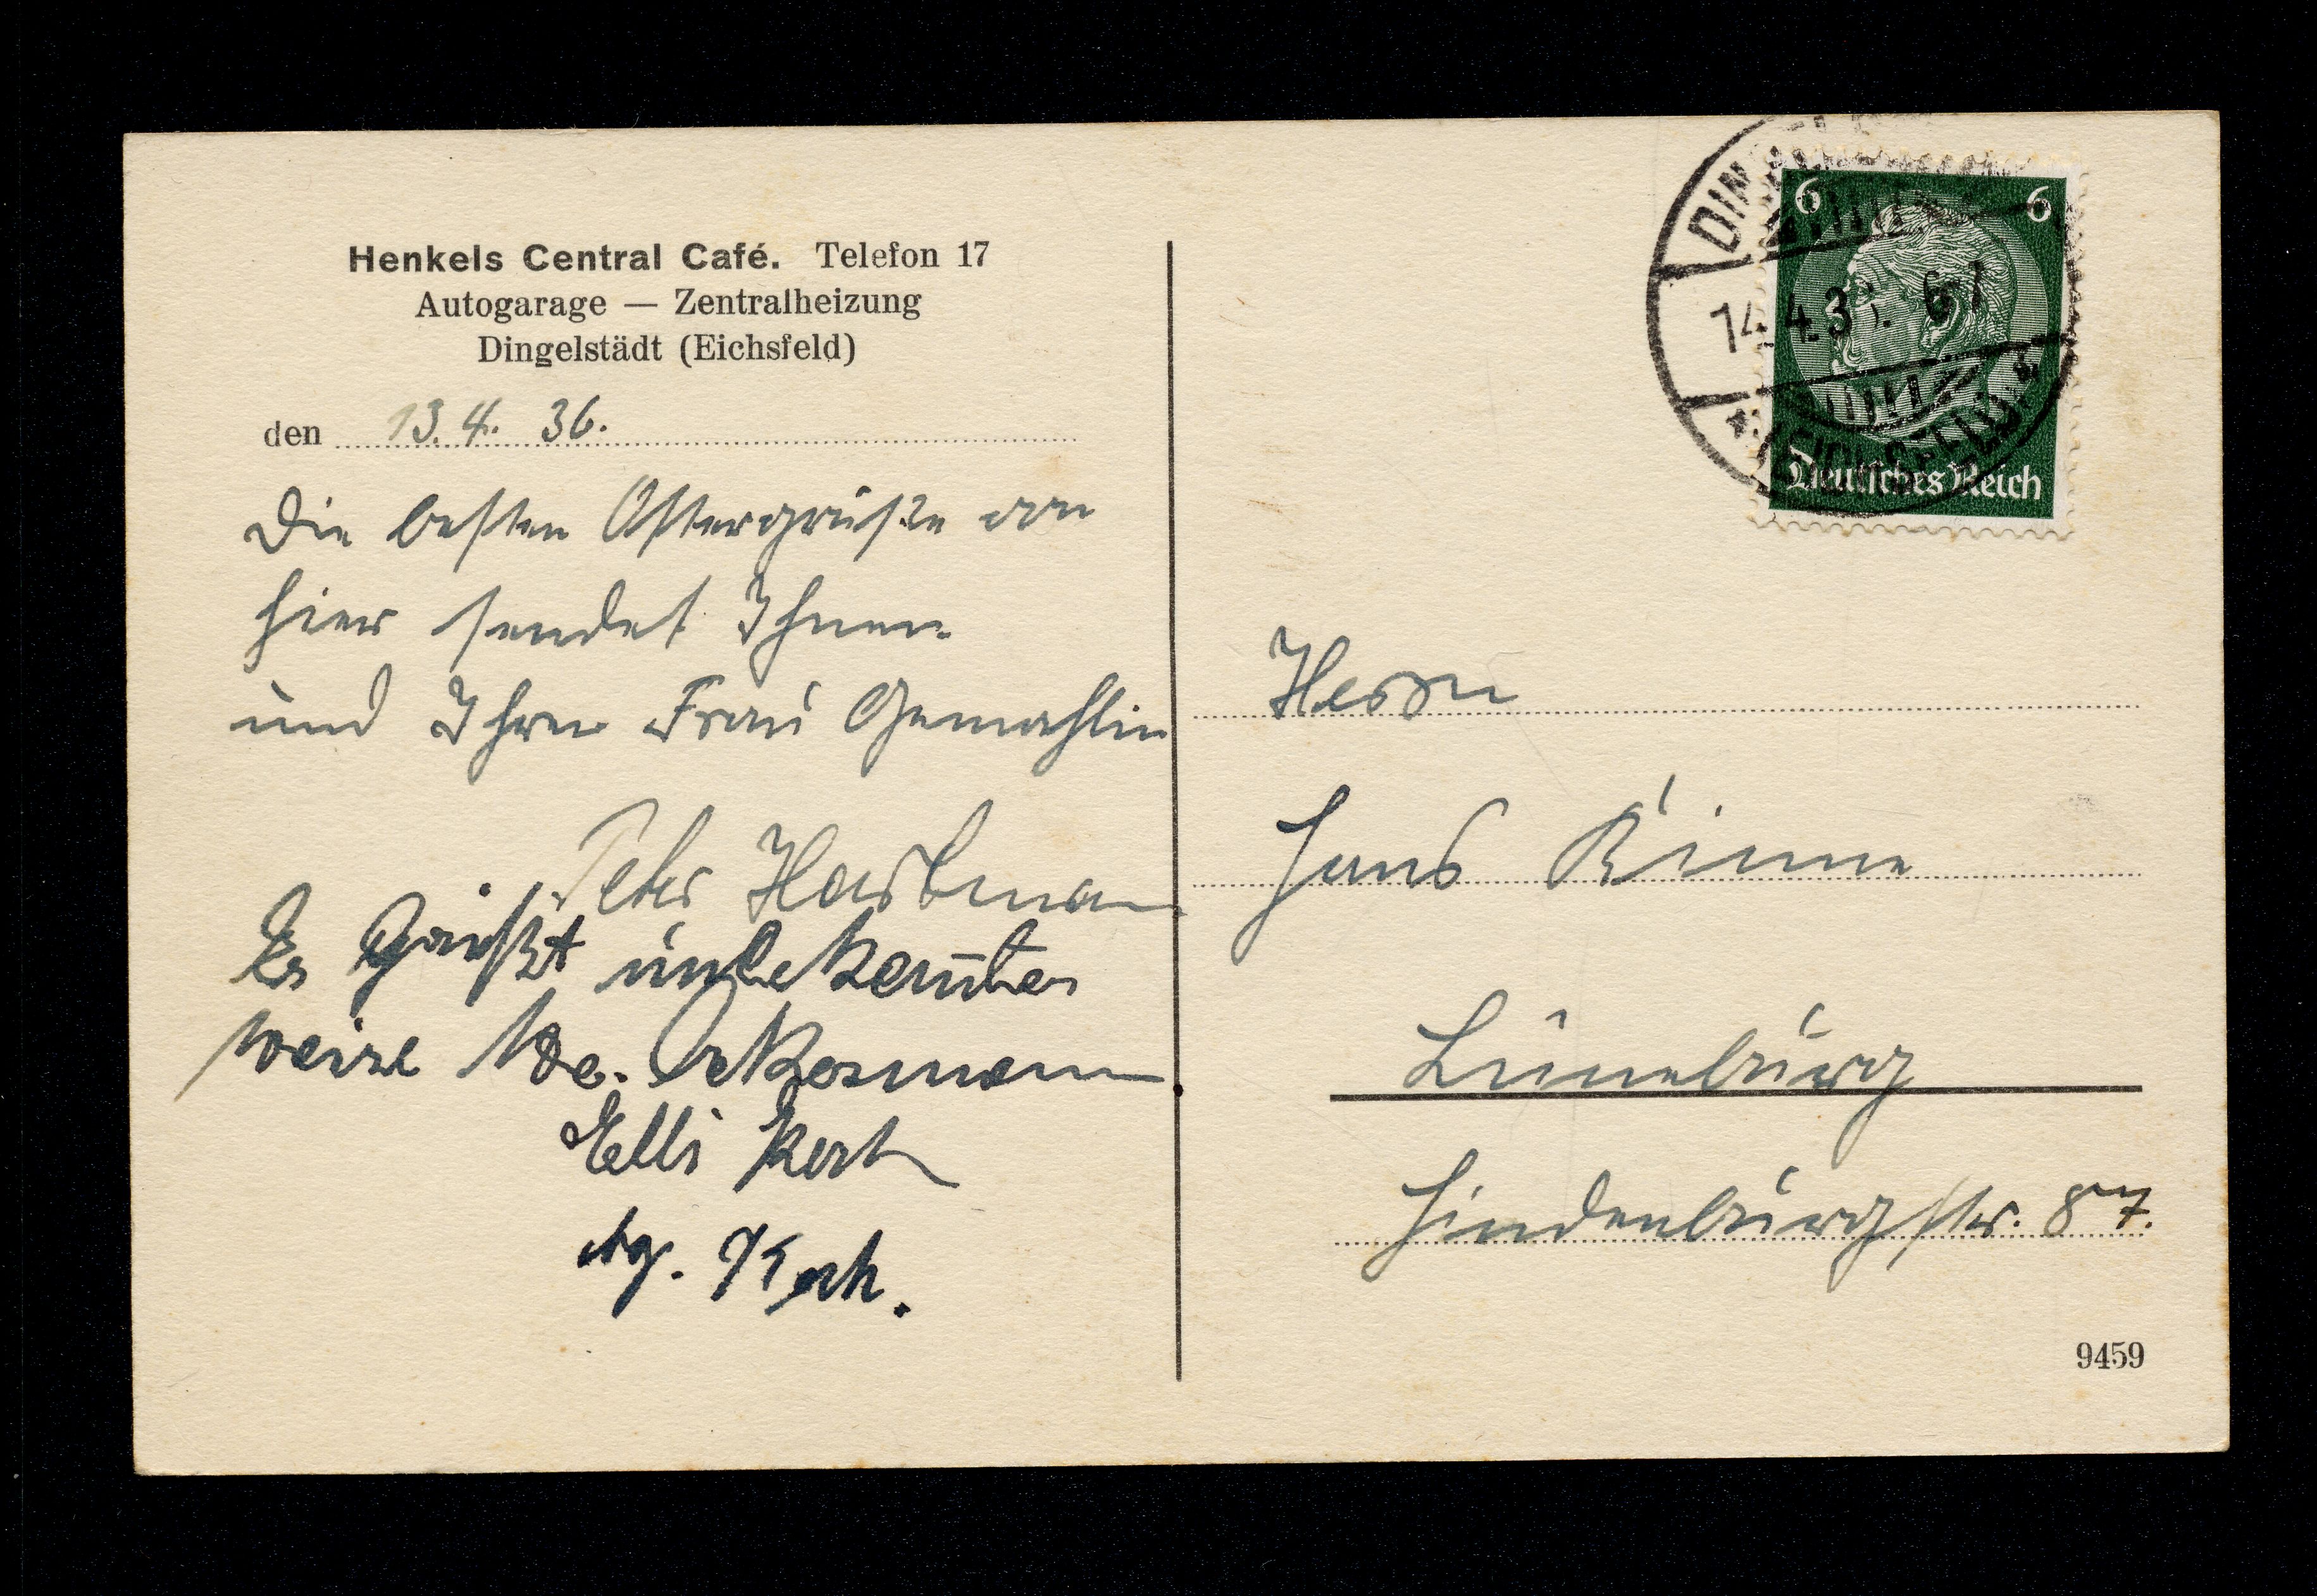 Henkels Central Café. Telefon 17
Autogarage — Zentralheizung
Dingelstädt (Eichsfeld)
den 13. 4. 36.
Die besten Ostergrüße von
hier sendet Ihnen
und Ihrer Frau Gemahlin
Peter Hartmann
Es grüßt unbekannter
weise
Elli Koch
Koch.
6 6
14.4.36. 6-7
Deutsches Reich
Herrn
Hans Rinne
Lüneburg
Hindenburgstr. 87.
9459